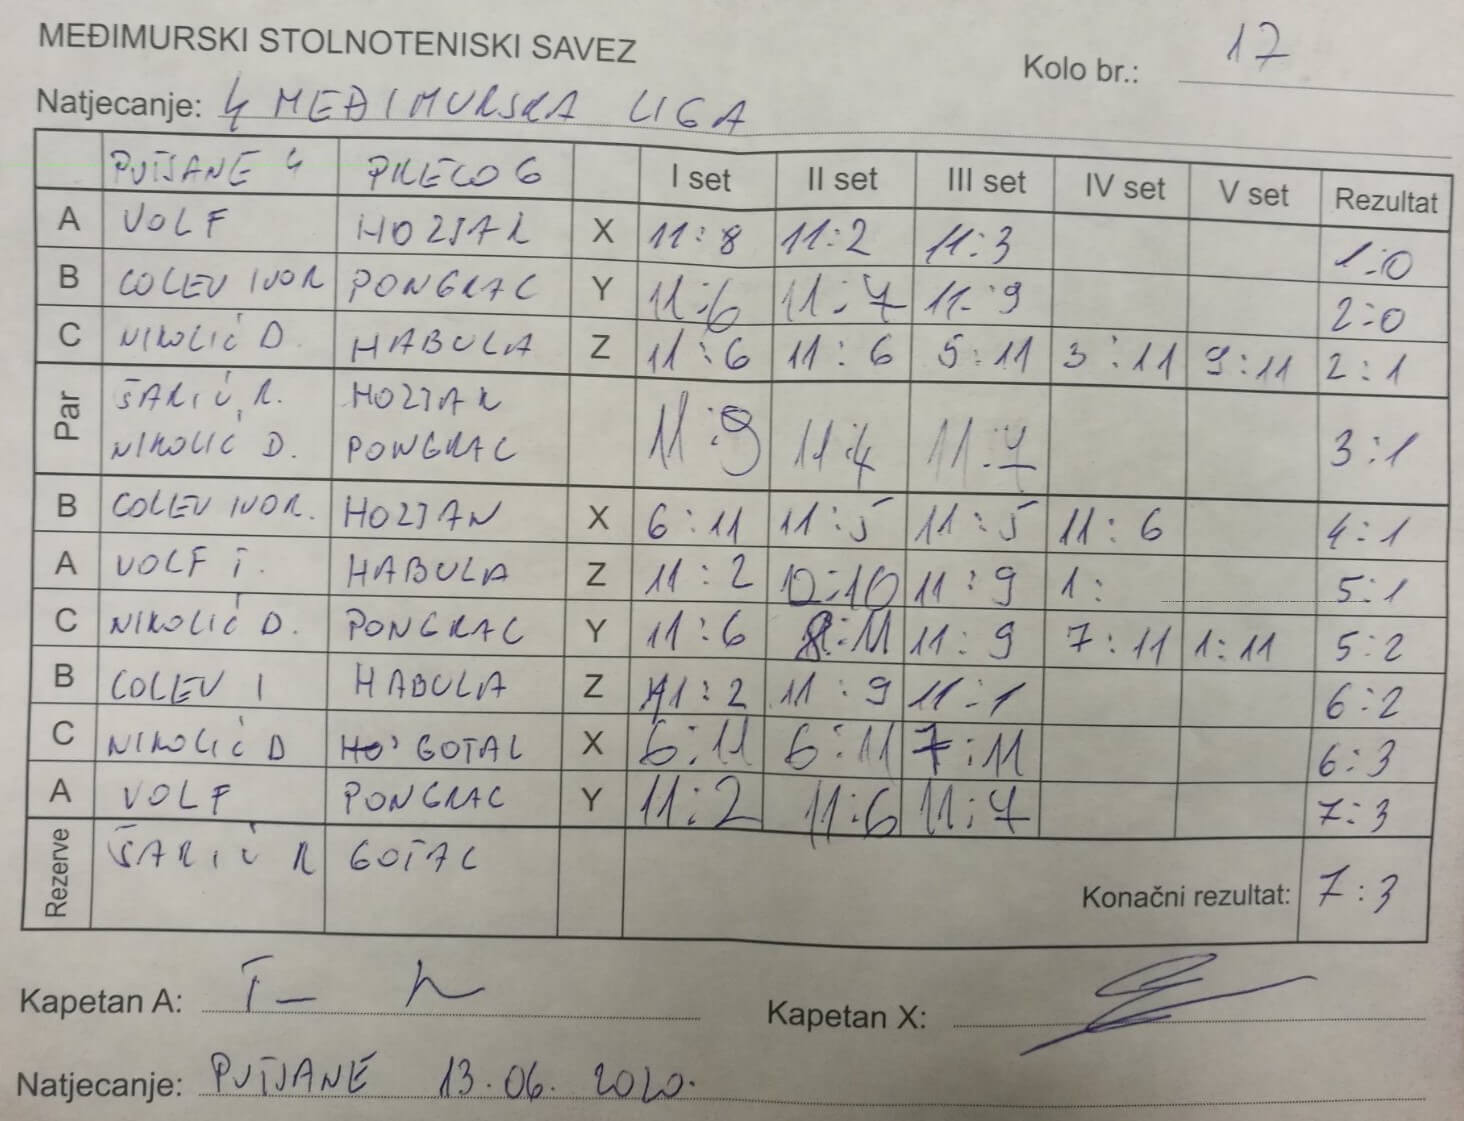 MEĐIMURSKI STOLNOTENISKI SAVEZ
Kolo br.: 17
Natjecanje: 4 MEĐIMURSKA LIGA
PUŠĆANE 4 PRELOG I set II set III set IV set V set Rezultat
A VOLF HOZJAK X 11:8 11:2 11:3 1:0
B COLEV IVOR PONGRAC Y 11:6 11:7 11:9 2:0
C NIKOLIĆ D. HABULA Z 11:6 11:6 5:11 3:11 9:11 2:1
Par ŠARIĆ, R. HOZJAK 11:9 11:4 11:7 3:1
NIKOLIĆ D. PONGRAC
B COLEV IVOR. HOZJAN X 6:11 11:5 11:5 11:6 4:1
A VOLF T. HABULA Z 11:2 12:10 11:9 1: 5:1
C NIKOLIĆ D. PONGRAC Y 11:6 8:11 11:9 7:11 1:11 5:2
B COLEV I HABULA Z 11:2 11:9 11:1 6:2
C NIKOLIĆ D GOTAL X 6:11 6:11 7:11 6:3
A VOLF PONGRAC Y 11:2 11:6 11:7 7:3
Rezerve ŠARIĆ R GOTAL Konačni rezultat: 7:3
Kapetan A: Kapetan X:
Natjecanje: 13.06.2020.